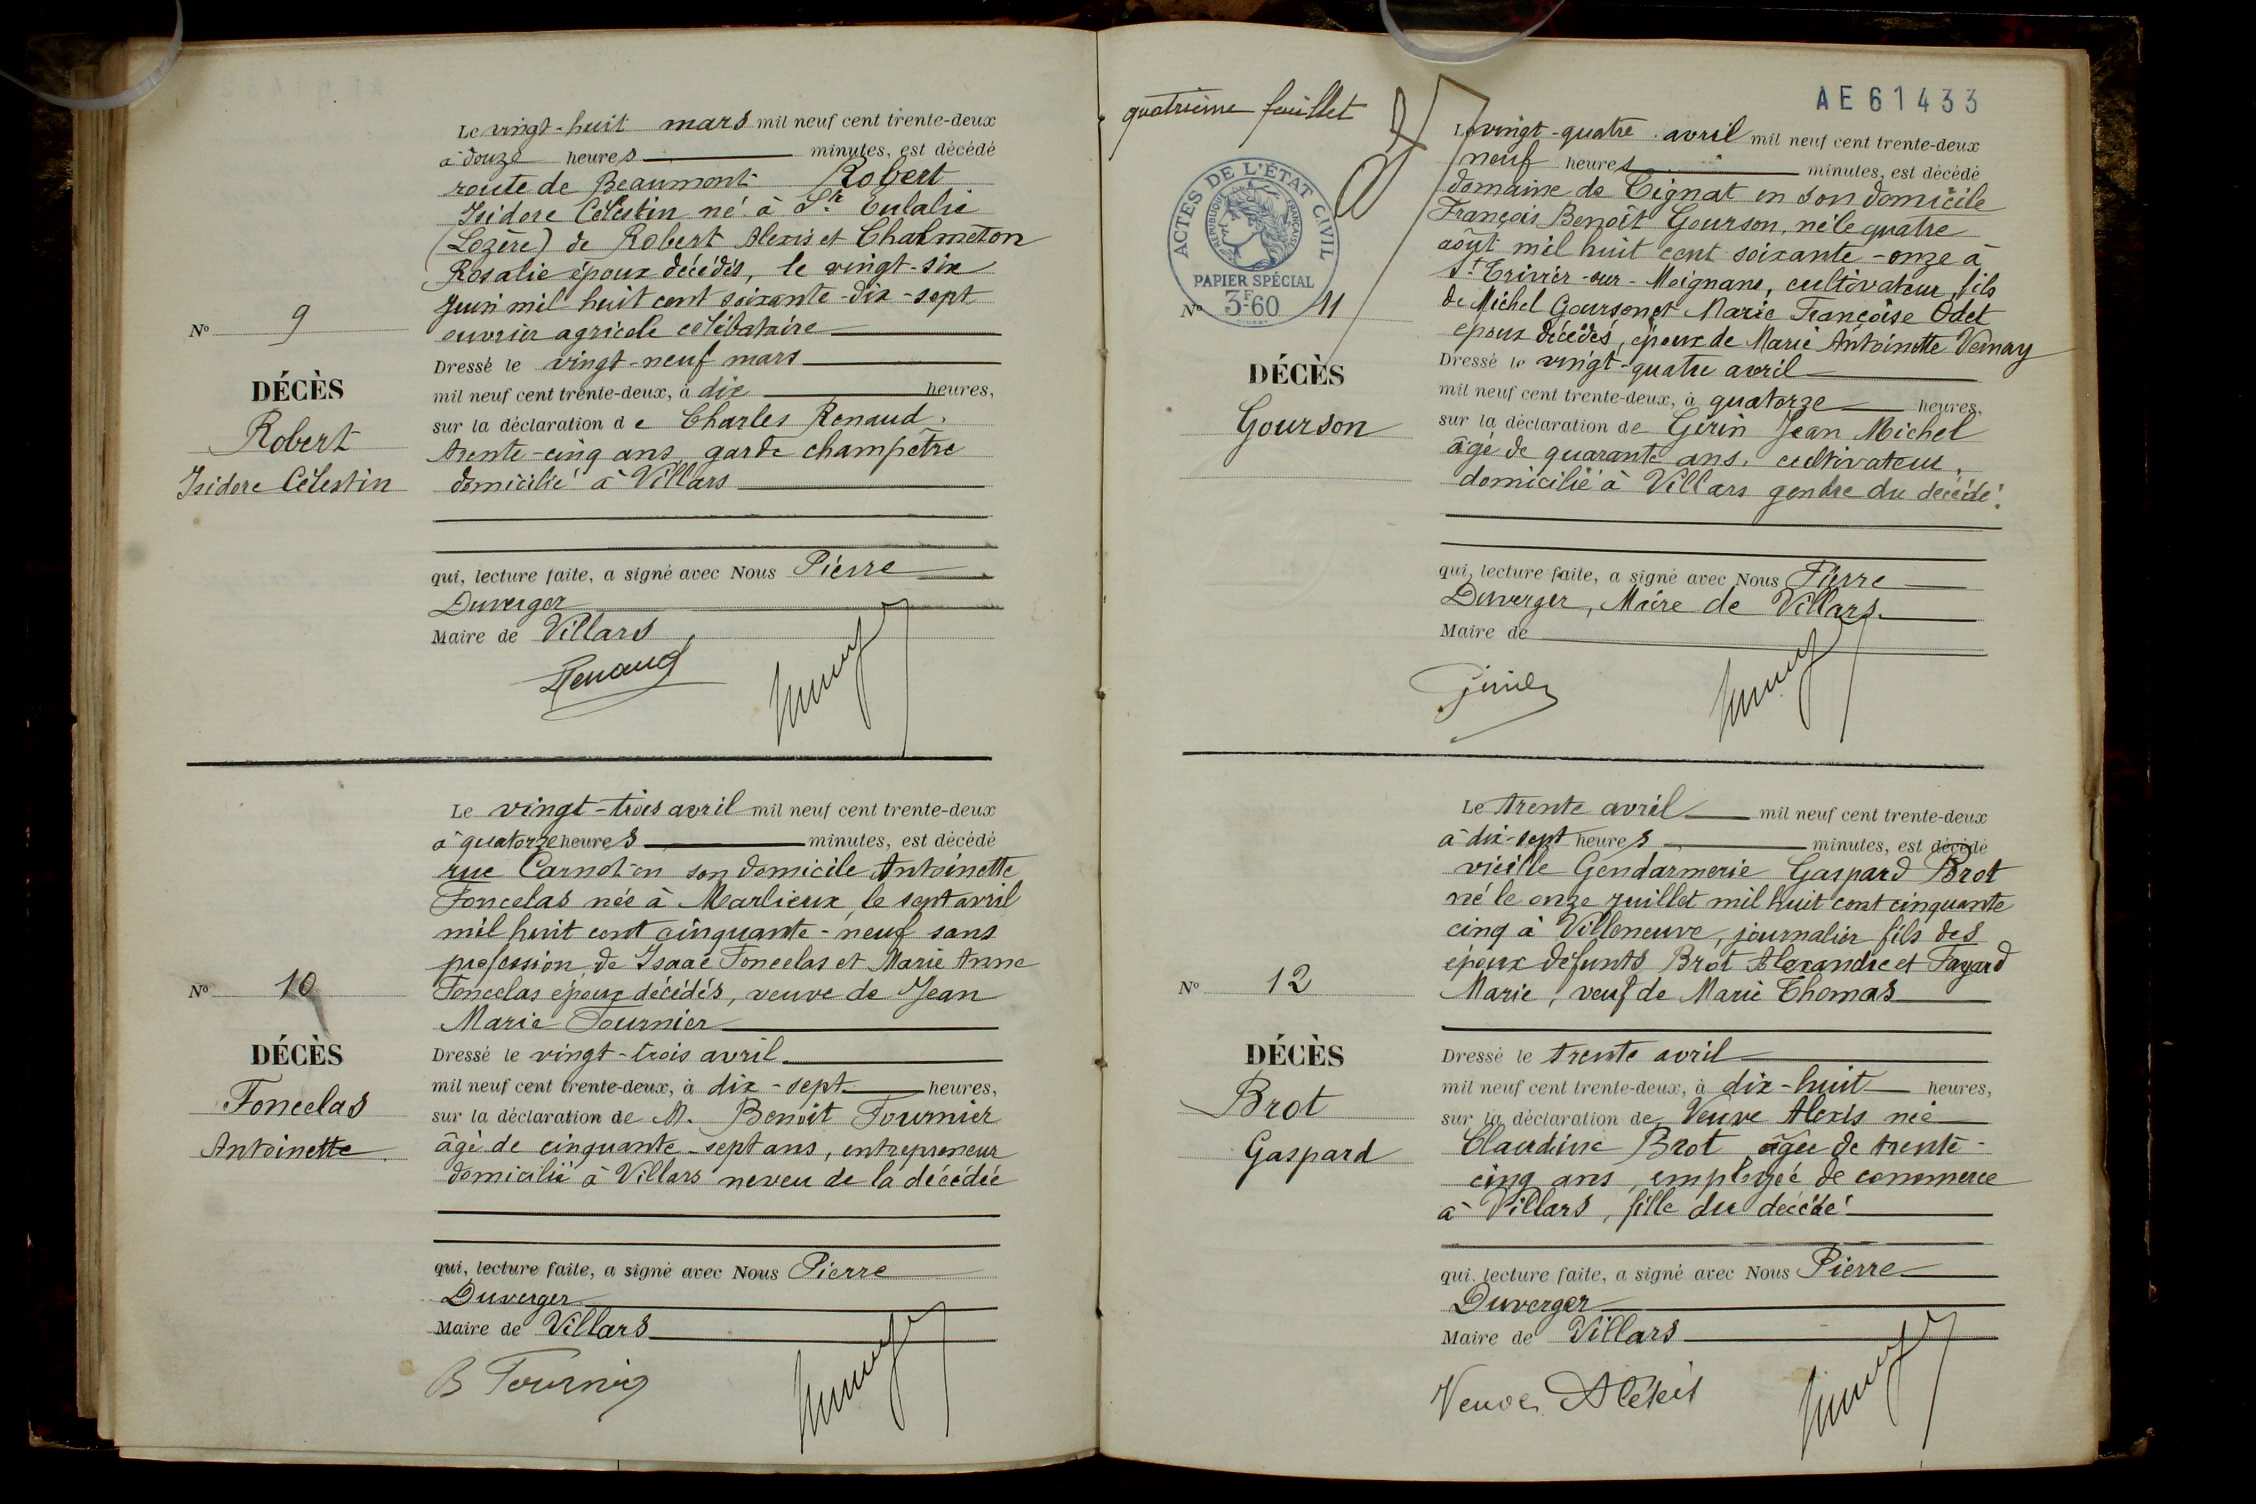 Le vingt-huit mars mil neuf cent trente-deux
à douze heures minutes, est décédé
route de Beaumont Robert
Isidore Célestin né à Ste Eulalie
(Lozère) de Robert Alexis et Chalmeton
Rosalie époux décédés, le vingt-six
juin mil huit cent soixante-dix-sept
ouvrier agricole célibataire
Dressé le vingt-neuf mars
mil neuf cent trente-deux, à dix heures,
sur la déclaration de Charles Renaud,
trente-cinq ans, garde champêtre
domicilié à Villars
qui, lecture faite, a signé avec Nous Pierre
Duverger
Maire de Villars
Renaud
No 9
DÉCÈS
Robert
Isidore Célestin
Le vingt-trois avril mil neuf cent trente-deux
à quatorze heures minutes, est décédé
rue Carnot en son domicile Antoinette
Foncelas née à Marlieux, le sept avril
mil huit cent cinquante-neuf sans
profession, de Isaac Foncelas et Marie Anne
Foncelas époux décédés, veuve de Jean
Marie Fournier
Dressé le vingt-trois avril
mil neuf cent trente-deux, à dix-sept heures,
sur la déclaration de M. Benoit Fournier
âgé de cinquante-sept ans, entrepreneur
domicilié à Villars neveu de la décédée
qui, lecture faite, a signé avec Nous Pierre
Duverger
Maire de Villars
B Fournier
No 10
DÉCÈS
Foncelas
Antoinette
quatrième feuillet
AE61433
ACTES DE L'ÉTAT CIVIL
RÉPUBLIQUE FRANÇAISE
PAPIER SPÉCIAL
3F60
No 11
DÉCÈS
Gourson
Le vingt-quatre avril mil neuf cent trente-deux
neuf heures minutes, est décédé
domaine de Tignat en son domicile
François Benoît Gourson, né le quatre
août mil huit cent soixante-onze à
St Trivier-sur-Moignans, cultivateur, fils
de Michel Gourson et Marie Françoise Odet
époux décédés, époux de Marie Antoinette Vernay
Dressé le vingt-quatre avril
mil neuf cent trente-deux, à quatorze heures,
sur la déclaration de Gerin Jean Michel
âgé de quarante ans, cultivateur,
domicilié à Villars gendre du décédé.
qui, lecture faite, a signé avec Nous Pierre
Duverger, Maire de Villars.
Maire de
Gerin
Le trente avril mil neuf cent trente-deux
à dix-sept heures minutes, est décédé
vieille Gendarmerie Gaspard Brot
né le onze juillet mil huit cent cinquante
cinq à Villeneuve, journalier fils des
époux défunts Brot Alexandre et Fayard
Marie, veuf de Marie Thomas
Dressé le trente avril
mil neuf cent trente-deux, à dix-huit heures,
sur la déclaration de Veuve Alexis née
Claudine Brot âgée de trente-
cinq ans, employée de commerce
à Villars, fille du décédé
qui, lecture faite, a signé avec Nous Pierre
Duverger
Maire de Villars
Veuve Alexis
No 12
DÉCÈS
Brot
Gaspard